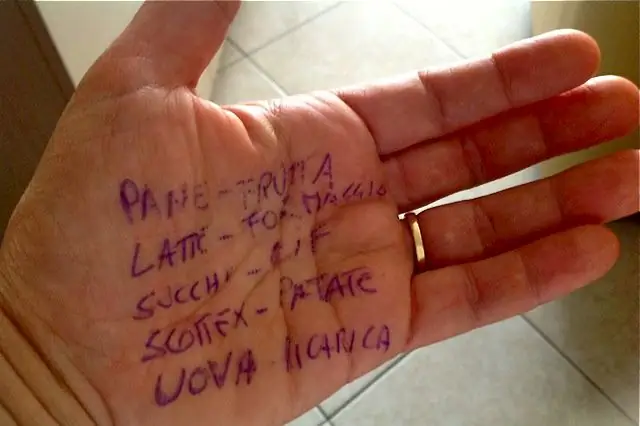 PANE - FRUTTA
LATTE - FORMAGGIO
SUCCHI - CIF
SCOTTEX - PATATE
UOVA RICARICA